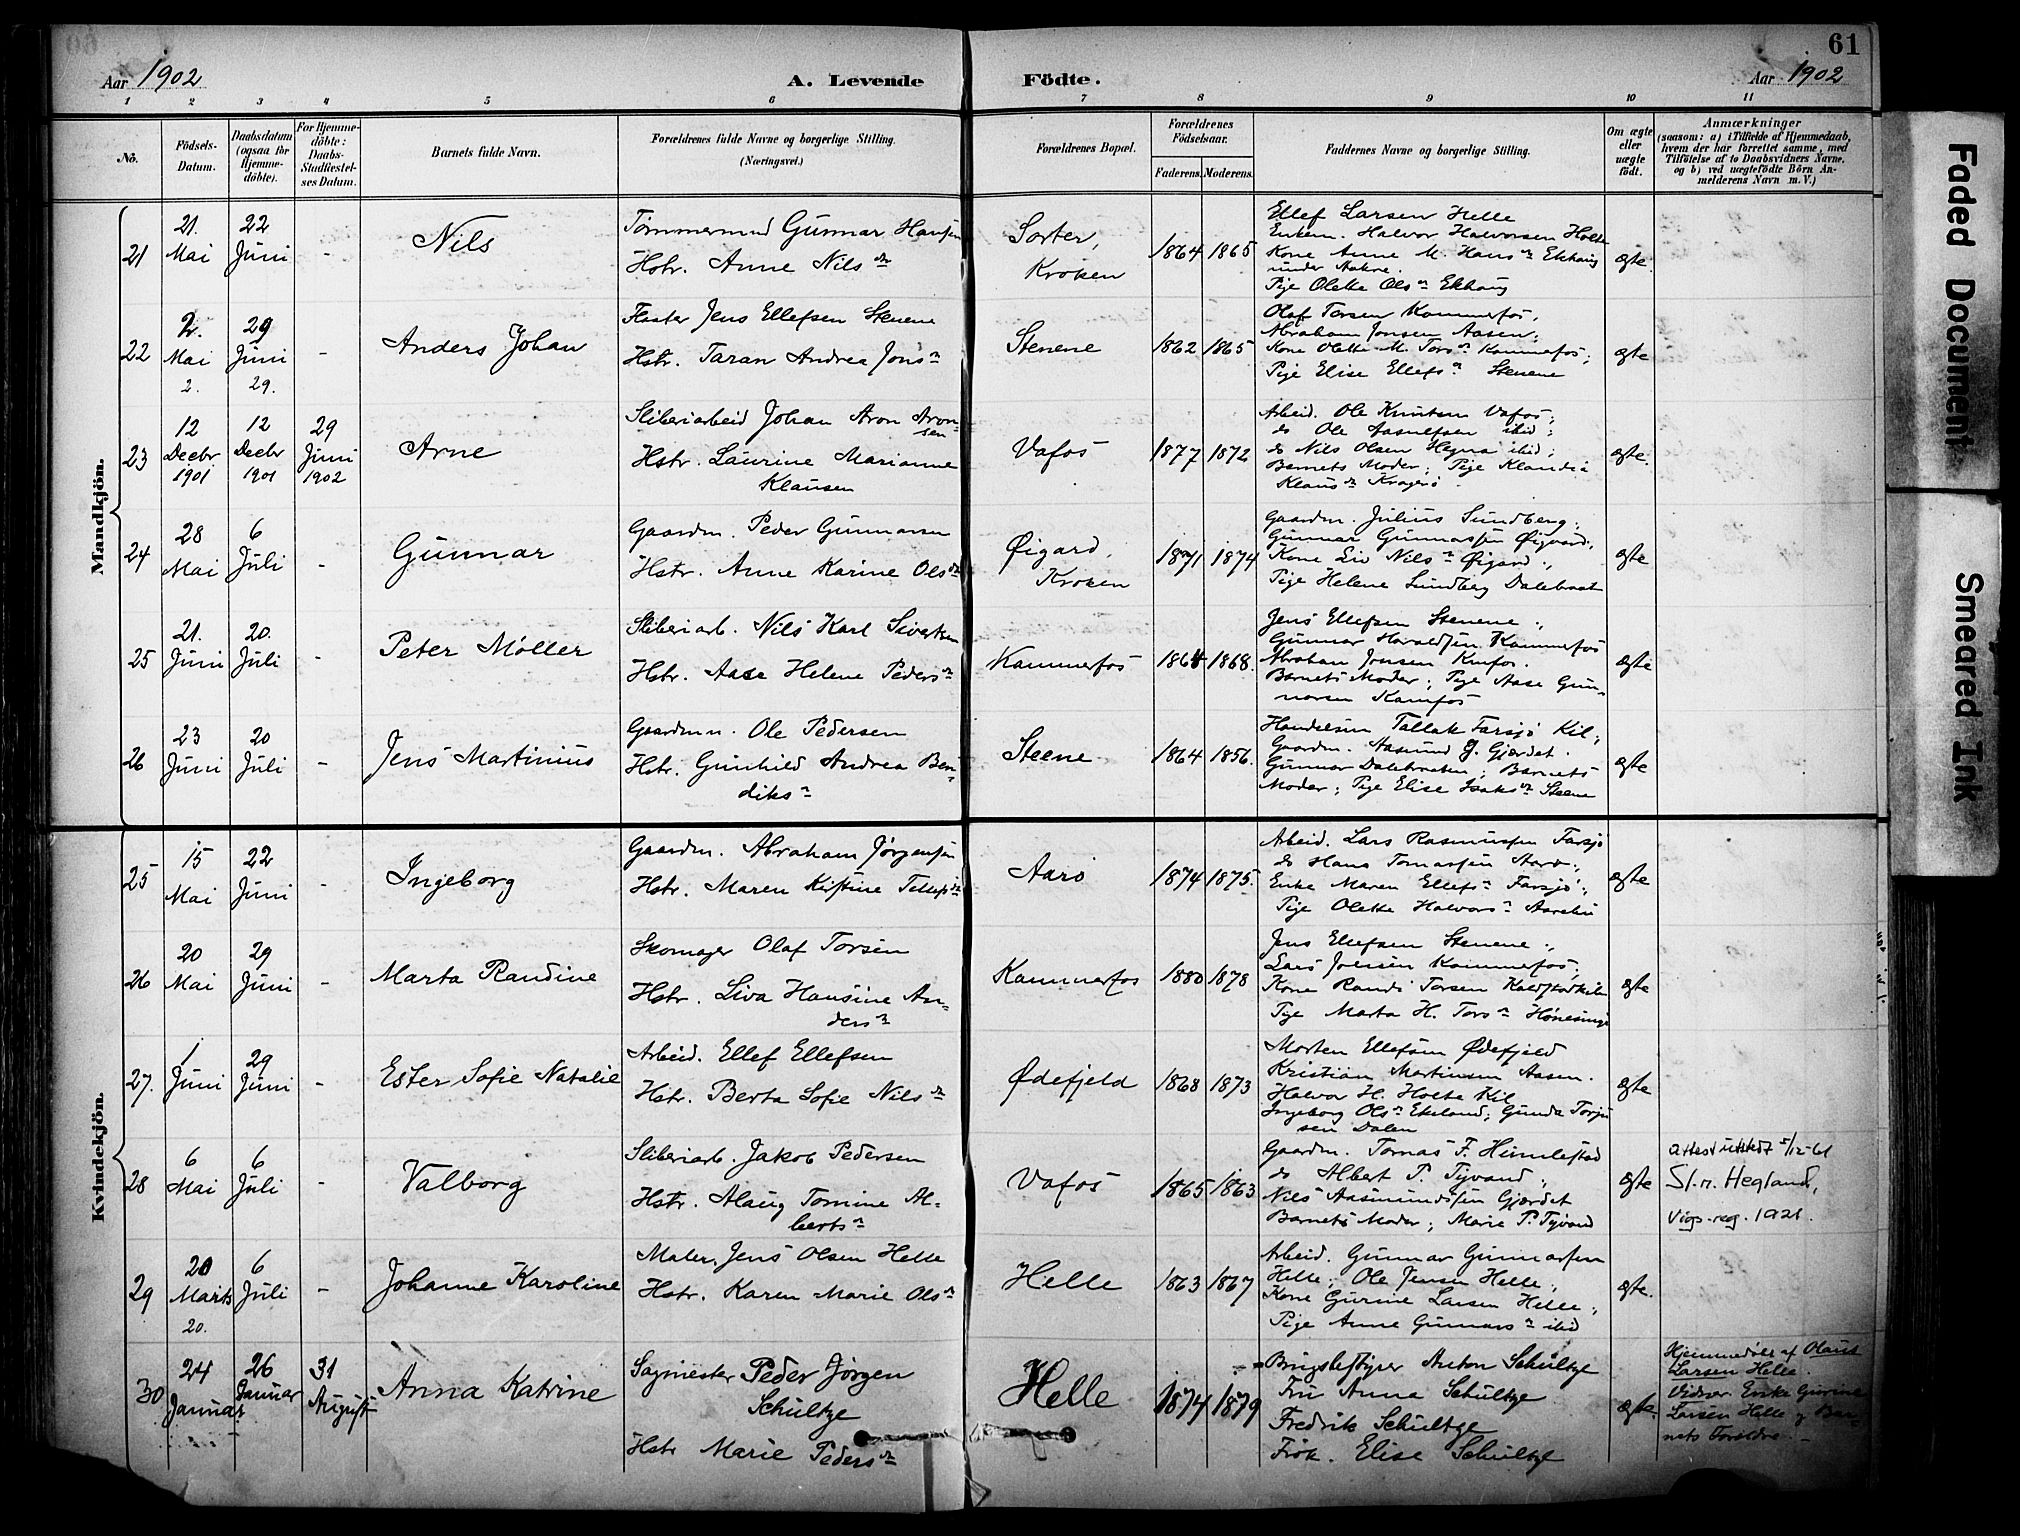 61
Aar 1902
A. Levende
Födte.
Aar 1902
1 2 3 4 5 6 7 8 9 10 11
No.
Födsels-
Datum.
Daabsdatum
(ogsaa for
Hjemme-
döbte).
For Hjemme-
döbte:
Daabs-
Stadfæstel-
ses Datum.
Barnets fulde Navn.
Forældrenes fulde Navne og borgerlige Stilling.
(Næringsvei.)
Forældrenes Bopæl.
Forældrenes
Födselsaar.
Faderens. Moderens.
Faddernes Navne og borgerlige Stilling.
Om ægte
eller
uægte
födt.
Anmærkninger
(saasom: a) i Tilfælde af Hjemmedaab,
hvem der har forrettet samme, med
Tilföielse af to Daabsvidners Navne,
og b) ved uægtefödte Börn An-
melderens Navn m. V.)
Mandkjön.
21
21.
Mai
22
Juni
-
Nils
Tømmermand Gunnar Hansen
Hstr. Anne Nilsdr
Sorter,
Kroken
1864 1865
Ellef Larsen Helle
Enkem. Halvor Halvorsen Holte
Kone Anne M. Hansdr Ekhaug
under Aakre.
Pige Olette Olsdr Ekhaug
ægte.
22
2.
Mai
2.
29
Juni
29.
-
Anders Johan
Fløter Jens Ellefsen Stenene
Hstr. Taran Andrea Jonsdr
Stenene
1862 1865
Olaf Torsen Kammerfos,
Abraham Jonsen Aasen;
Kone Olette M. Torsdr Kammefos;
Pige Elise Ellefsdr Stenene
ægte
23
12
Decbr
1901
12
Decbr
1901
29
Juni
1902
Arne
Sliberiarbeid Johan Aron Aron-
sen
Hstr. Laurine Marianne
Klausen
Vafos
1877 1872
Arbeid. Ole Knutsen Vafos;
do Ole Aasulfsen ibid;
do Nils Olsen Hegna ibid;
Barnets Moder; Pige Klaudia
Klausdr Kragerø.
ægte.
24
28
Mai
6
Juli
-
Gunnar
Gaardm. Peder Gunnarsen
Hstr. Anne Karine Olsdr
Øigard,
Kroken
1871 1874
Gaardm. Julius Sundberg;
Gunnar Gunnarsen Øigard,
Kone Liv Nilsdr Øigard;
Pige Helene Sundberg Dalebraat
ægte
25
21.
Juni
20.
Juli
-
Peter Møller
Sliberiarb. Nils Karl Siversen
Hstr. Aase Helene Pedersdr
Kammerfos
1864 1868.
Jens Ellefsen Stenene;
Gunnar Haraldsen Kammerfos
Abraham Jonsen Kmfos.
Barnets Moder; Pige Aase Gun-
narsen Kamfos
ægte
26
23
Juni
20
Juli
-
Jens Martinius
Gaardm. Ole Pedersen
Hstr. Gunhild Andrea Ben-
diksdr
Steene
1864 1856.
Handelsm Tallak Farsjø Kil;
Gaardm. Aasmund G. Gjærdet.
Gunnar Dalebraaten; Barnets
Moder; Pige Elise Isaksdr Steene
ægte
Kvindekjön.
25
15
Mai
22
Juni
-
Ingeborg
Gaardm. Abraham Jørgensen
Hstr. Maren Kristine Tellefsdr
Aarø
1874 1875.
Arbeid. Lars Rasmussen Farsjø
do Hans Tomassen Aarø;
Enke Maren Ellefsdr Farsjø;
Pige Olette Halvorsdr Aarølie
ægte
26
20
Mai
29
Juni
-
Marta Randine
Skomager Olaf Torsen
Hstr. Liva Hansine An-
dersdr
Kammerfos
1880 1878
Jens Ellefsen Stenene;
Lars Joensen Kammerfos,
Kone Randi Torsen Kalstadkilen
Pige Marta H. Torsdr Hønesinge
ægte
27.
1
Juni
29
Juni
-
Ester Sofie Natalie
Arbeid. Ellef Ellefsen
Hstr. Berta Sofie Nilsdr
Ødefjeld
1868 1873
Morten Ellefsen Ødefjeld
Kristian Martinsen Aasen.
Halvor H. Holte Kil
Ingeborg Olsdr Ekelund; Gunda Torju
sen Dalen
ægte
28
6
Mai
6
Juli
-
Valborg
Sliberiarb. Jakob Pedersen
Hstr. Alaug Tomine Al-
bertsdr
Vafos
1865 1863
Gaardm. Tomas F. Humlestad
do Albert P. Tyvand;
Nils Aasmundsen Gjærdet
Barnets Moder; Marie P. Tyvand
ægte
attest utstedt 5/12-61
Sl.n. Hegland,
Vigs.reg. 1921.
29
20
Marts
20.
6
Juli
-
Johanne Karoline
Maler. Jens Olsen Helle
Hstr. Karen Marie Olsdr
Helle
1863 1867
Arbeid. Gunnar Gunnarsen
Helle; Ole Jensen Helle;
Kone Gurine Larsen Helle;
Pige Anne Gunnarsdr ibid
ægte.
30
24
Januar
26
Januar
31
August
Anna Katrine
Sagmester Peder Jørgen
Schultze
Hstr Marie Pedersdr
Helle
1874 1879
Brugsbestyrer Anton Schultze
Fru Anna Schultze
Fredrik Schultze
Frøk. Elise Schultze
ægte.
Hjemmedøbt af Olaus
Larsen Helle.
Vidner Enke Gurine
Larsen Helle og Bar-
nets Forældre.
Faded Document
Smeared Ink